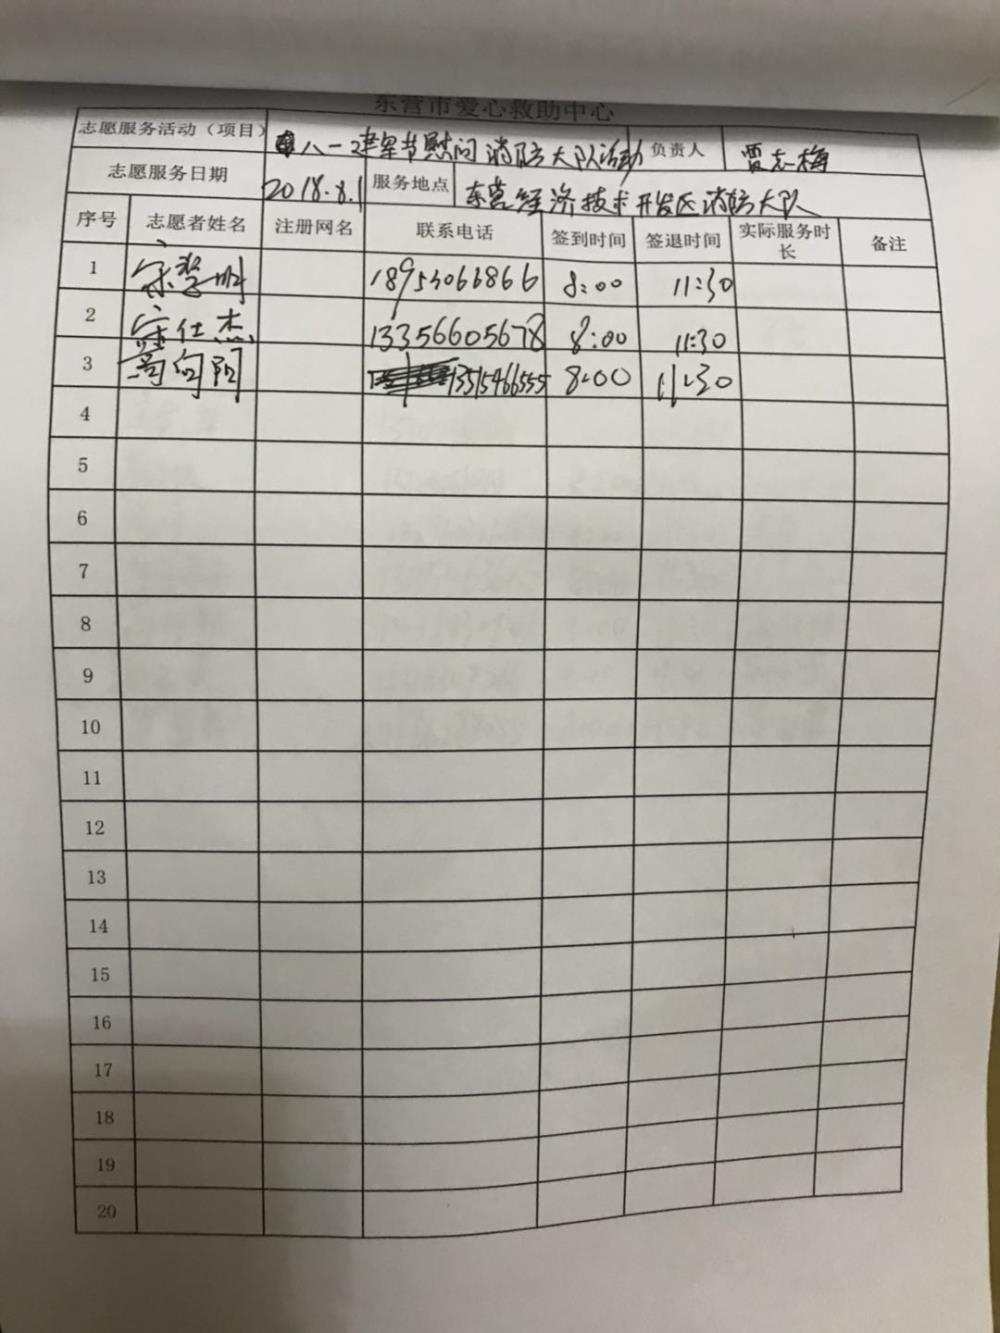 东营市爱心救助中心
志愿服务活动（项目） 八一建军节慰问消防大队活动 负责人 贾志梅
志愿服务日期 2018.8.1 服务地点 东营经济技术开发区消防大队
序号 志愿者姓名 注册网名 联系电话 签到时间 签退时间 实际服务时长 备注
1 宋黎明 18953066866 8:00 11:30
2 宋仕杰 13356605678 8:00 11:30
3 向阳 1351546555 8:00 11:30
4
5
6
7
8
9
10
11
12
13
14
15
16
17
18
19
20